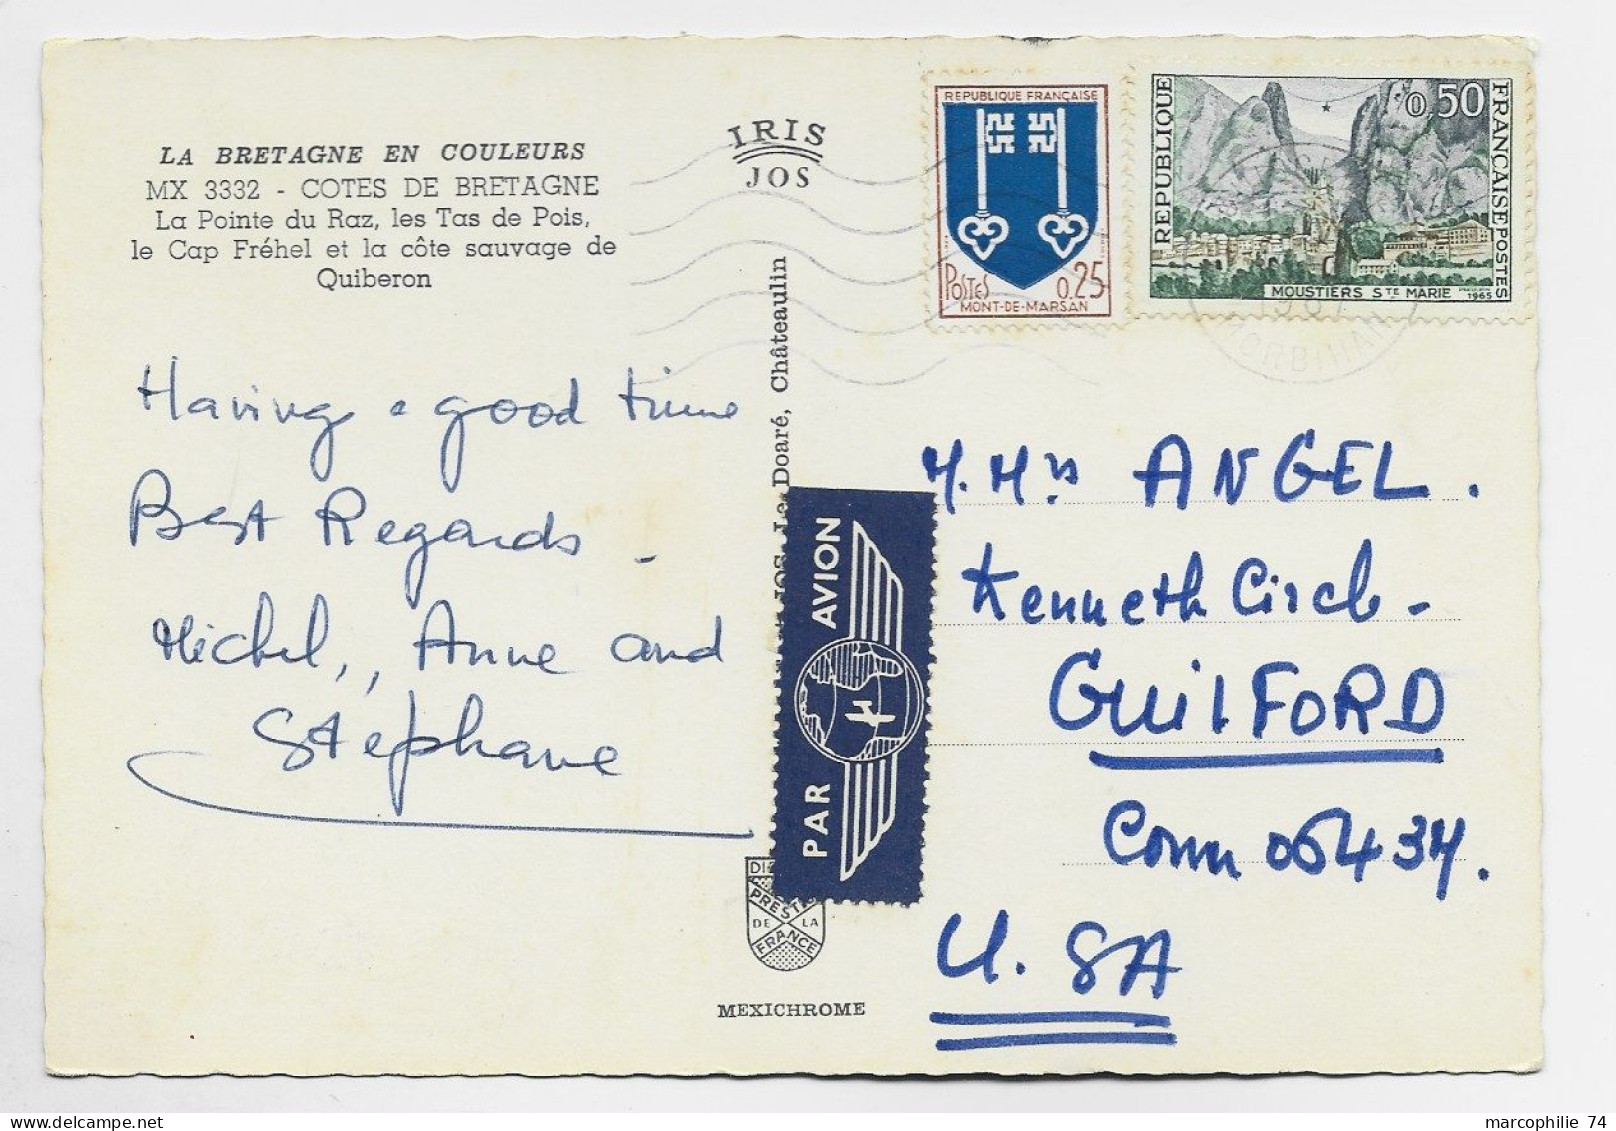 LA BRETAGNE EN COULEURS
MX 3332 - COTES DE BRETAGNE
La Pointe du Raz, les Tas de Pois,
le Cap Fréhel et la côte sauvage de
Quiberon
IRIS
JOS
REPUBLIQUE FRANÇAISE
POSTES 0.25
MONT-DE-MARSAN
REPUBLIQUE
FRANÇAISE POSTES
0,50
MOUSTIERS STE MARIE
1965
MORBIHAN
Having a good time
Best Regards -
Michel,, Anne and
Stéphane
JOS Le Doaré, Châteaulin
PAR AVION
PRESTI
DE LA
FRANCE
MEXICHROME
M. Mrs ANGEL.
Kenneth Circle -
GUILFORD
Conn 06437.
U.SA
marcophilie 74